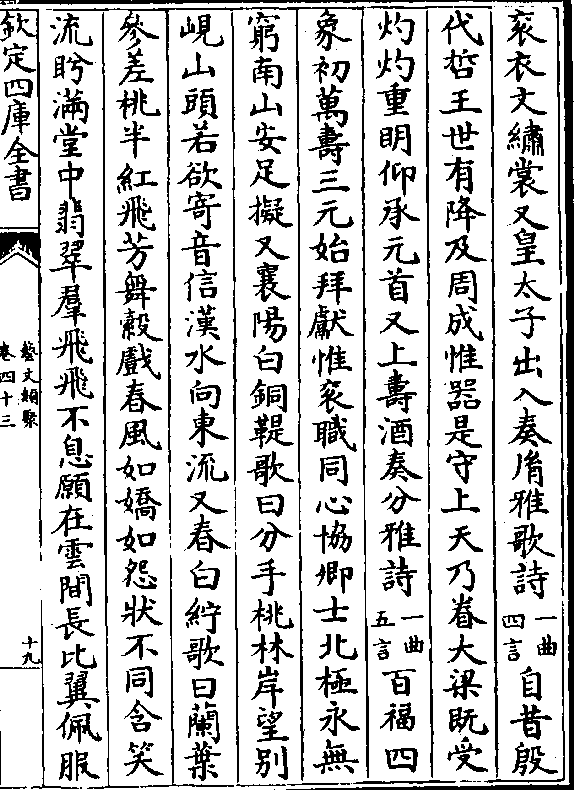 衮衣文繡裳又皇太子出入奏㣧雅歌詩一曲四言自昔殷
代哲王世有降及周成惟器是守上天乃眷大梁既受
灼灼重明仰承元首又上壽酒奏介雅詩一曲五言百福四
象初萬壽三元始拜獻惟衮職同心協卿士北極永無
窮南山安足擬又襄陽白銅鞮歌曰分手桃林岸望別
峴山頭若欲寄音信漢水向東流又春白紵歌曰蘭葉
參差桃半紅飛芳舞縠戲春風如嬌如怨狀不同含笑
流盻滿堂中翡翠羣飛飛不息願在雲間長比翼佩服
欽定四庫全書
藝文類聚
卷四十三
十九